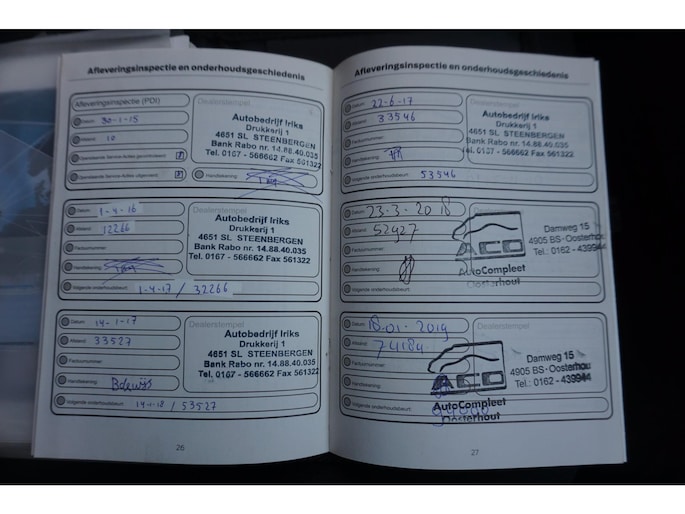 Afleveringsinspectie en onderhoudsgeschiedenis
Afleveringsinspectie (PDI)
Datum: 30-1-15
Afstand: 10
Handtekening:
Dealerstempel
Autobedrijf Iriks
Drukkerij 1
4651 SL STEENBERGEN
Bank Rabo nr. 14.88.40.035
Tel. 0167 - 566662 Fax 561322
Datum: 1-4-16
Afstand: 12266
Factuurnummer:
Handtekening:
Volgende onderhoudsbeurt: 1-4-17 / 32266
Dealerstempel
Autobedrijf Iriks
Drukkerij 1
4651 SL STEENBERGEN
Bank Rabo nr. 14.88.40.035
Tel. 0167 - 566662 Fax 561322
Datum: 14-1-17
Afstand: 33527
Factuurnummer:
Handtekening:
Volgende onderhoudsbeurt: 14-1-18 / 53527
Dealerstempel
Autobedrijf Iriks
Drukkerij 1
4651 SL STEENBERGEN
Bank Rabo nr. 14.88.40.035
Tel. 0167 - 566662 Fax 561322
26
Afleveringsinspectie en onderhoudsgeschiedenis
Datum: 22-6-17
Afstand: 33546
Factuurnummer:
Handtekening:
Volgende onderhoudsbeurt: 53546
Dealerstempel
Autobedrijf Iriks
Drukkerij 1
4651 SL STEENBERGEN
Bank Rabo nr. 14.88.40.035
Tel. 0167 - 566662 Fax 561322
Datum: 23-3-2018
Afstand: 52927
Factuurnummer:
Handtekening:
Volgende onderhoudsbeurt:
Dealerstempel
ACO
AutoCompleet
Oosterhout
Damweg 15
4905 BS-Oosterhout
Tel.: 0162 - 439944
Datum: 18-01-2019
Afstand: 74184
Factuurnummer:
Handtekening:
Volgende onderhoudsbeurt:
Dealerstempel
ACO
AutoCompleet
Oosterhout
Damweg 15
4905 BS-Oosterhout
Tel.: 0162 - 439944
27